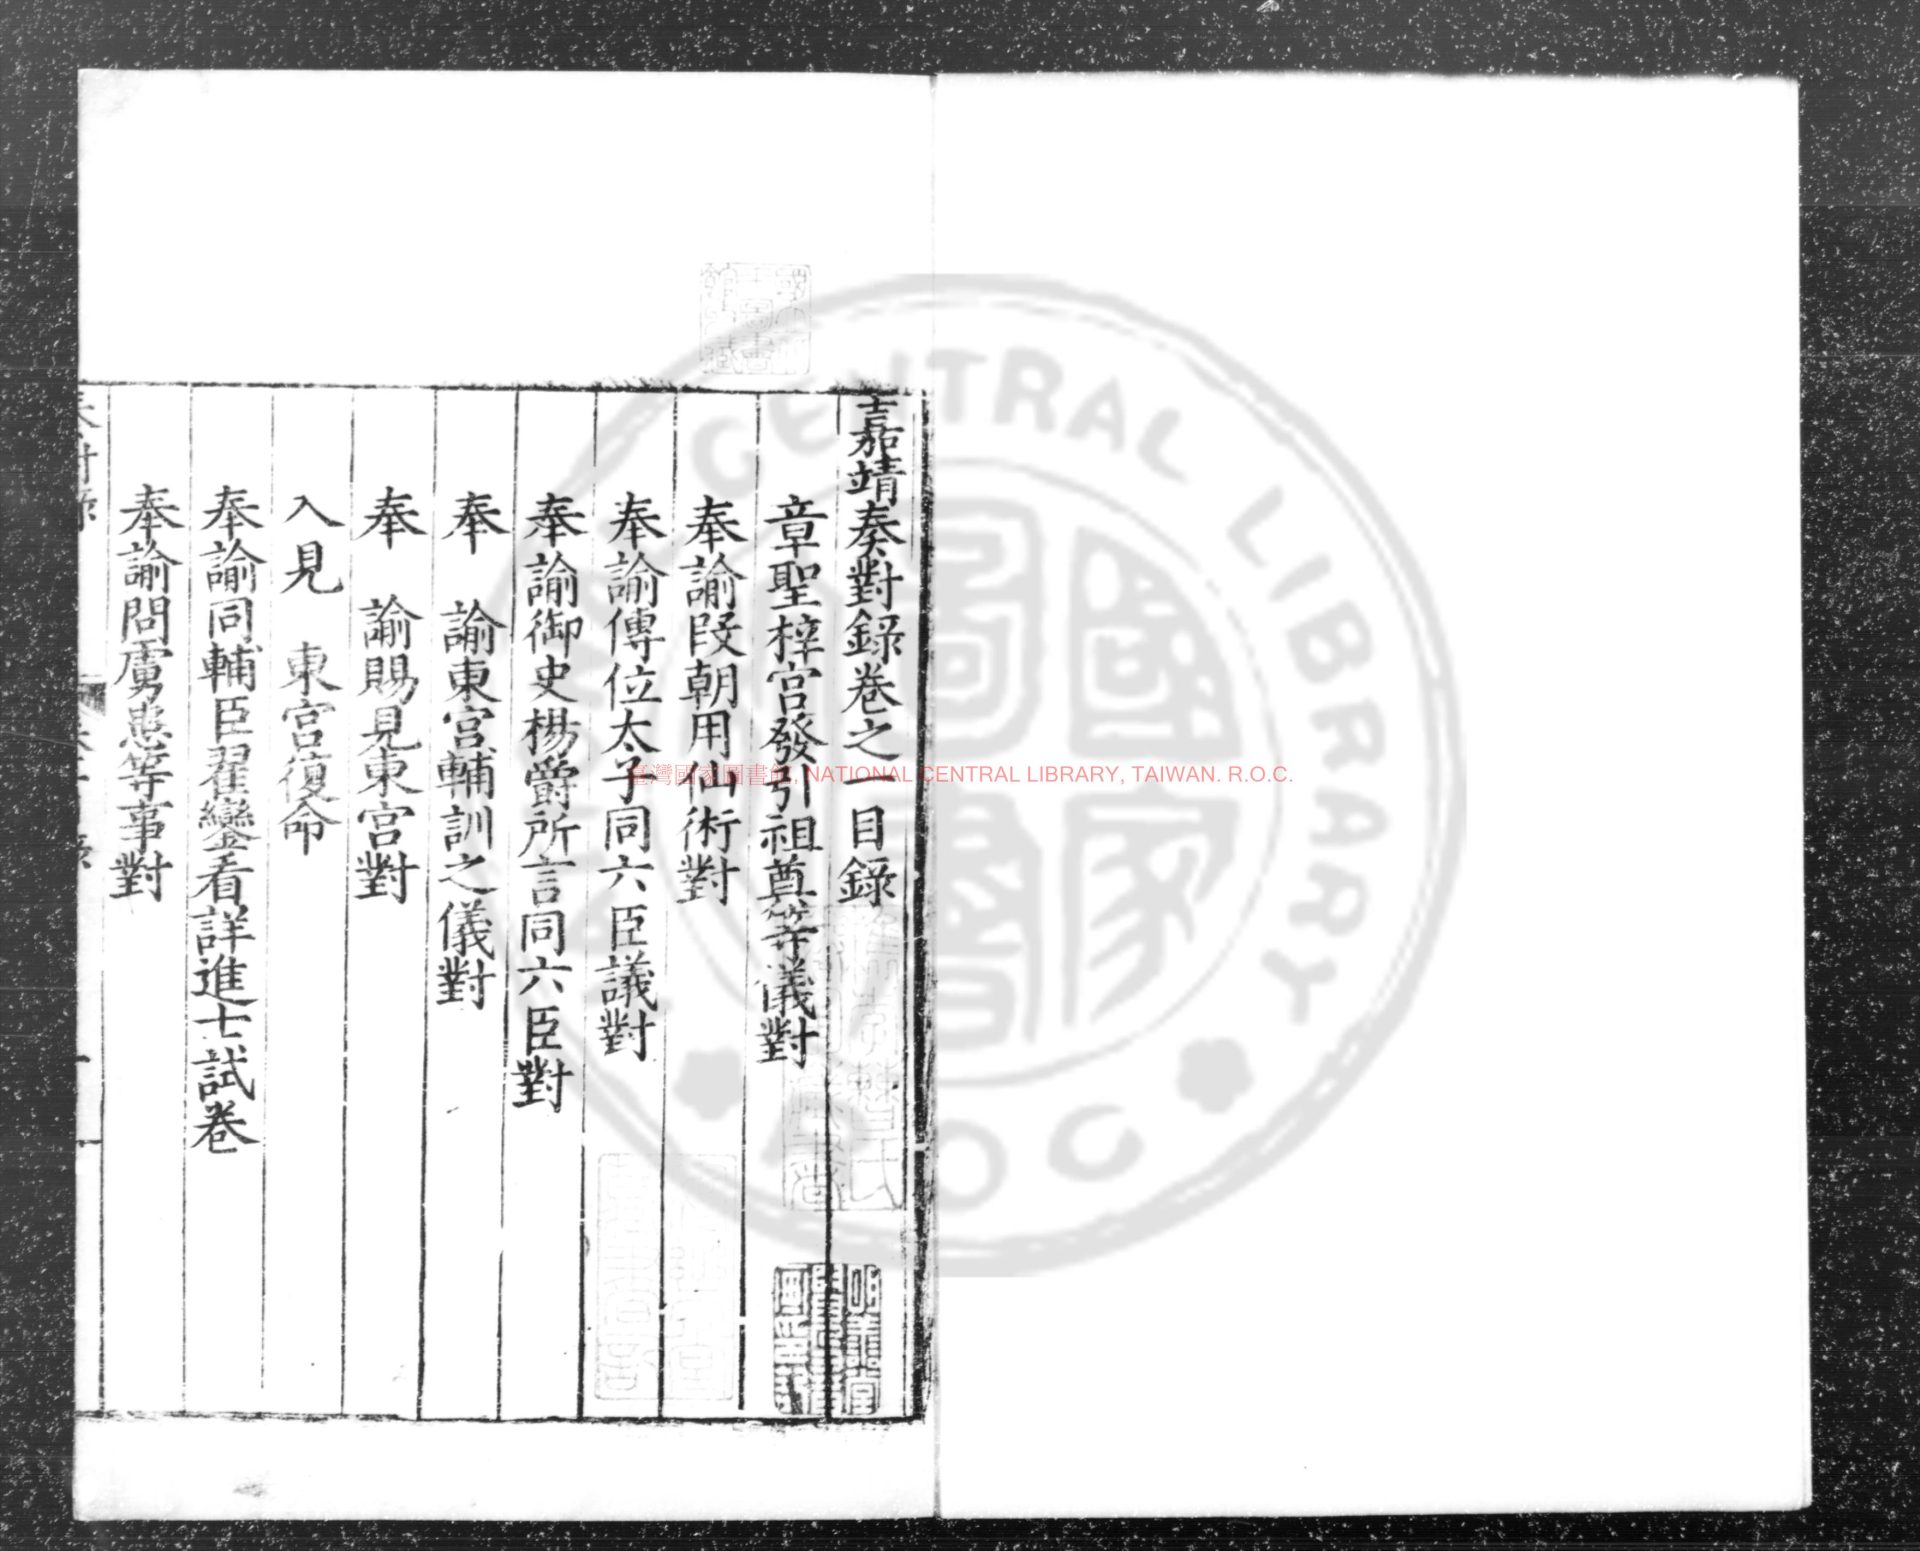 嘉靖奏對錄卷之一目錄
章聖梓宮發引祖奠等儀對
奉諭段朝用仙術對
奉諭傳位太子同六臣議對
奉諭御史楊爵所言同六臣對
奉　諭東宮輔訓之儀對
奉　諭賜見東宮對
入見　東宮復命
奉諭同輔臣翟鑾看詳進士試卷
奉諭問虜患等事對
臺灣國家圖書館, NATIONAL CENTRAL LIBRARY, TAIWAN. R.O.C.
CENTRAL LIBRARY
ROC
國家圖書